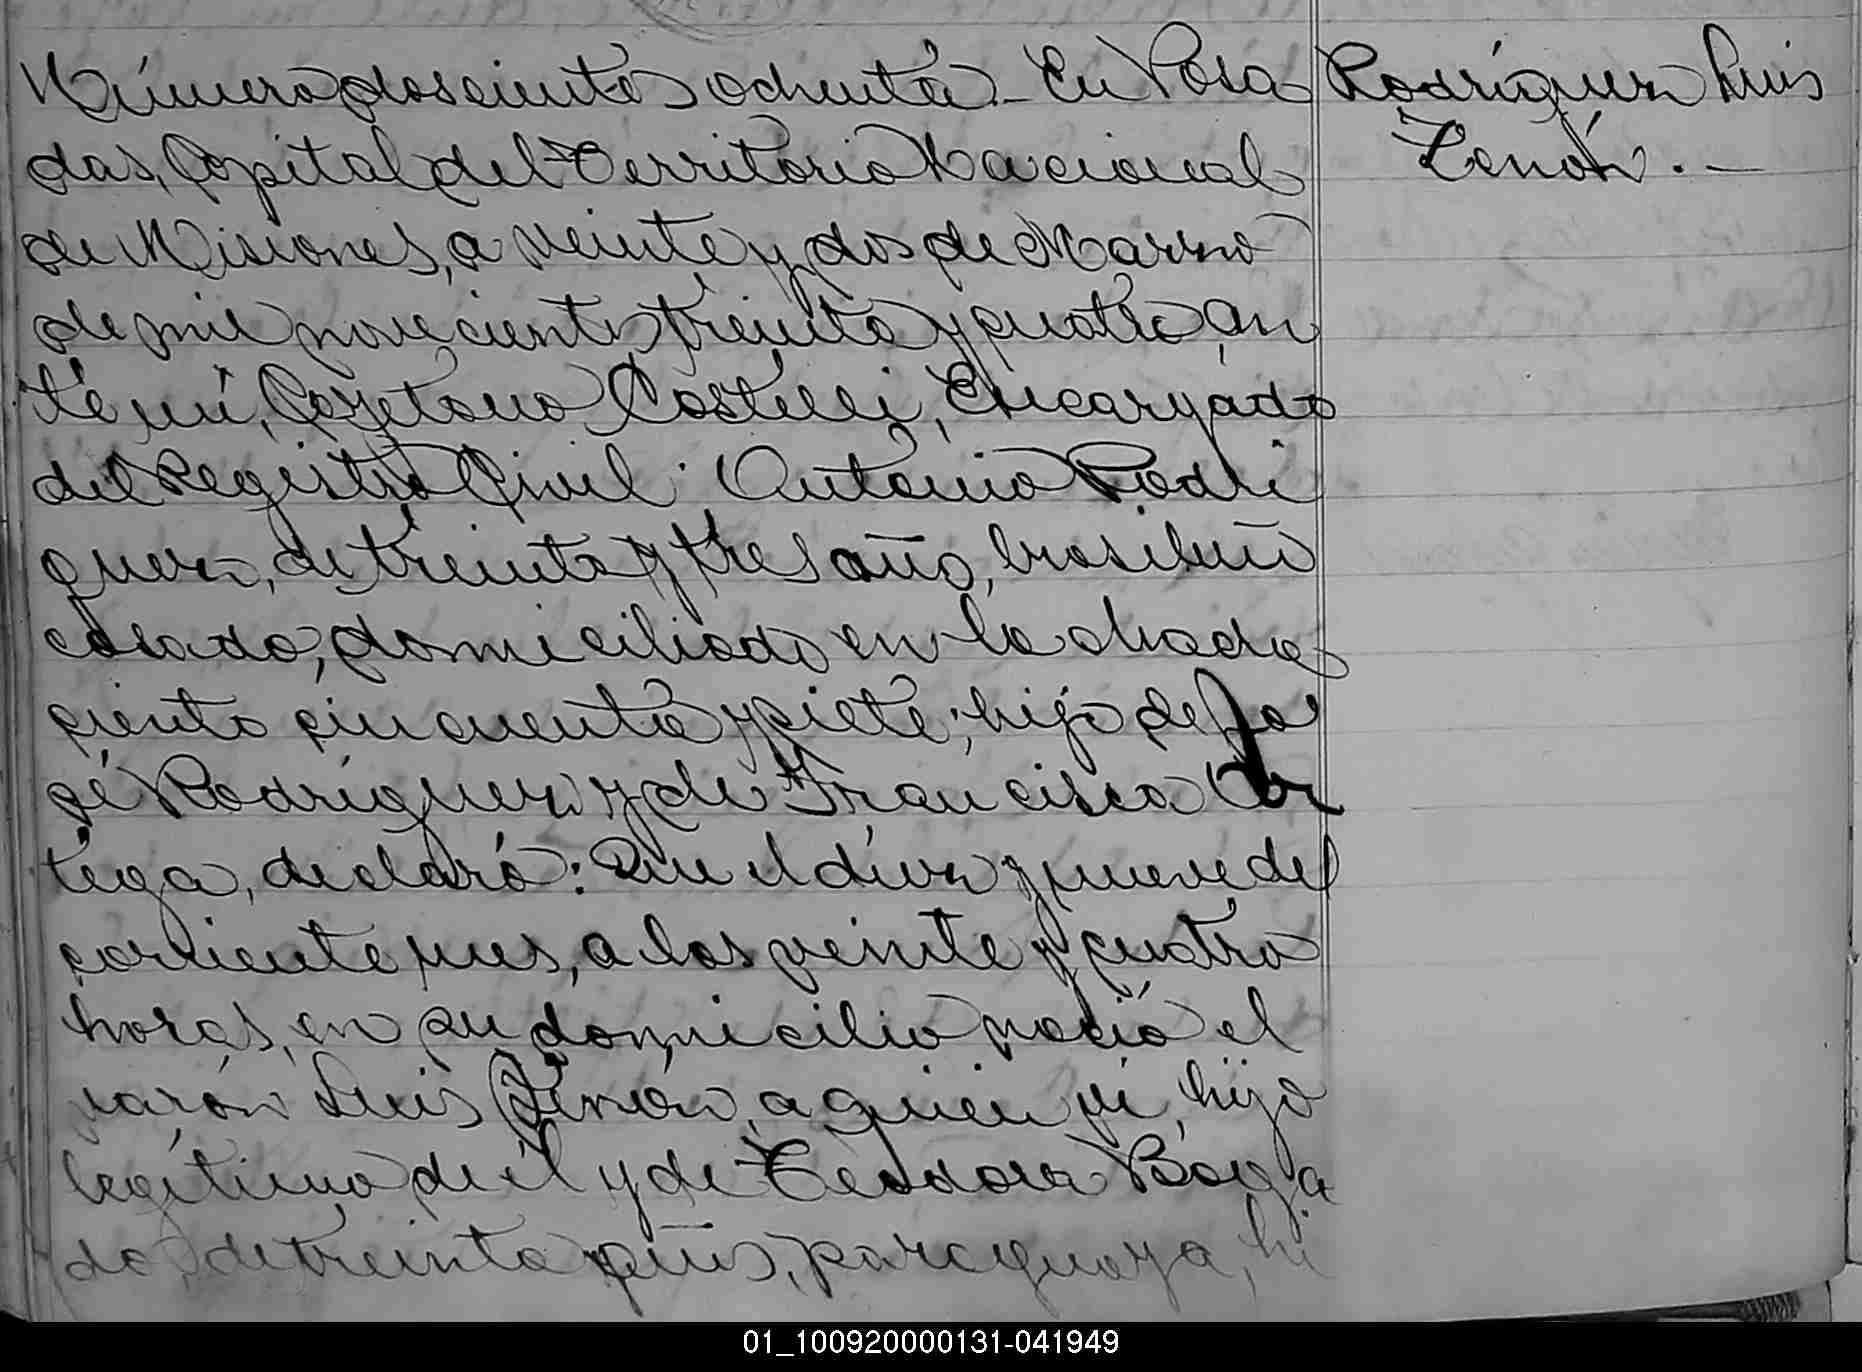 Número doscientos ochenta.- En Posa
das, Capital del Territorio Nacional
de Misiones, a veinte y dos de Marzo
de mil novecientos treinta y cuatro, an
te mí, Cayetano Castelli, Encargado
del Registro Civil: Antonio Rodrí
guez, de treinta y tres años, brasileño
casado, domiciliado en la chacra
ciento cincuenta y siete; hijo de Jo
sé Rodríguez y de Francisca Or
tega, declaró: Que el diez y nueve del
corriente mes, a las veinte y cuatro
horas, en su domicilio nació el
varón Luis Zenón, a quien vi, hijo
legítimo de él y de Teodora Boga
do, de treinta años, paraguaya, hi
Rodríguez Luis
Zenón.-
01_100920000131-041949